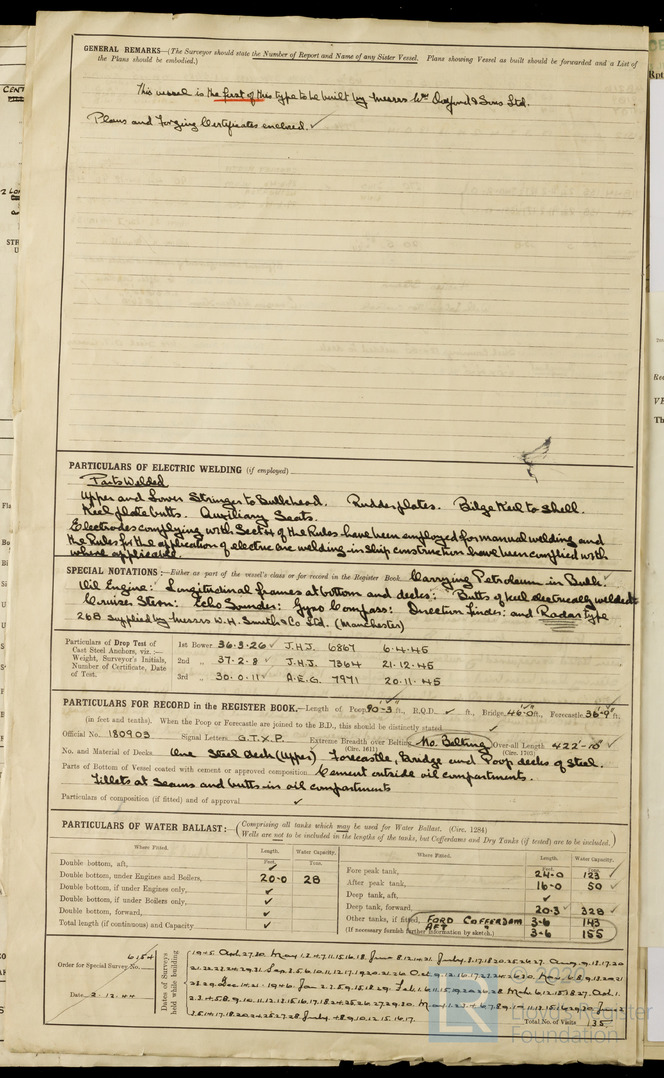 GENERAL REMARKS—(The Surveyor should state the Number of Report and Name of any Sister Vessel. Plans showing Vessel as built should be forwarded and a List of
the Plans should be embodied.)
This vessel is the first of this type to be built by Messrs Wm Doxford & Sons Ltd.
Plans and Forging Certificates enclosed. ✓
PARTICULARS OF ELECTRIC WELDING (if employed)
Parts Welded
Upper and Lower Stringer to Bulkhead. Rudder plates. Bilge Keel to Shell.
Keel plate butts. Auxiliary Seats.
Electrodes complying with Sect of the Rules have been employed for manual welding and
the Rules for the application of electric arc welding in ship construction have been complied with
where applicable.
SPECIAL NOTATIONS:—Either as part of the vessel's class or for record in the Register Book. Carrying Petroleum in Bulk:
Oil Engine: Longitudinal frames at bottom and decks: Butts of keel electrically welded:
Cruiser Stern: Echo Sounder: Gyro Compass: Direction Finder: and Radar type
268 supplied by Messrs W.H. Smith & Co Ltd. (Manchester)
Particulars of Drop Test of
Cast Steel Anchors, viz.:—
Weight, Surveyor's Initials,
Number of Certificate, Date
of Test.
1st Bower 36·3·26 ✓ J.H.J. 6867 6·4·45
2nd „ 37·2·8 ✓ J.H.J. 7364 21·12·45
3rd „ 30·0·11 ✓ A.E.G. 7971 20·11·45
PARTICULARS FOR RECORD in the REGISTER BOOK.—Length of Poop 90-3 ft., R.Q.D. ✓ ft., Bridge 46-0 ft., Forecastle 36-9 ft.
(in feet and tenths). When the Poop or Forecastle are joined to the B.D., this should be distinctly stated
Official No. 180903 Signal Letters G.T.X.P. Extreme Breadth over Belting No. Belting Over-all Length 422'-10" ✓
(Circ. 1611) (Circ. 1703)
No. and Material of Decks One Steel Deck (Upper) Forecastle, Bridge and Poop decks of Steel.
Parts of Bottom of Vessel coated with cement or approved composition Cement outside oil compartments.
Fillets at Seams and butts in oil compartments
Particulars of composition (if fitted) and of approval ✓
PARTICULARS OF WATER BALLAST:—(Comprising all tanks which may be used for Water Ballast. (Circ. 1284)
Wells are not to be included in the lengths of the tanks, but Cofferdams and Dry Tanks (if tested) are to be included.)
Where Fitted. Length. Water Capacity.
Feet. Tons.
Double bottom, aft, ✓
Double bottom, under Engines and Boilers, 20-0 28
Double bottom, if under Engines only, ✓
Double bottom, if under Boilers only, ✓
Double bottom, forward, ✓
Total length (if continuous) and Capacity ✓
Where Fitted. Length. Water Capacity.
Fore peak tank, 24-0 123 ✓
After peak tank, 16-0 50 ✓
Deep tank, aft, ✓
Deep tank, forward, 20-3 328 ✓
Other tanks, if fitted, FORD COFFERDAM 3-6 143
AFT " 3-6 155
(If necessary furnish further information by sketch.)
Order for Special Survey No. 6154
Date 2·12·44
Dates of Surveys
held while building
Total No. of Visits 135
2020
Lloyd's Register
Foundation